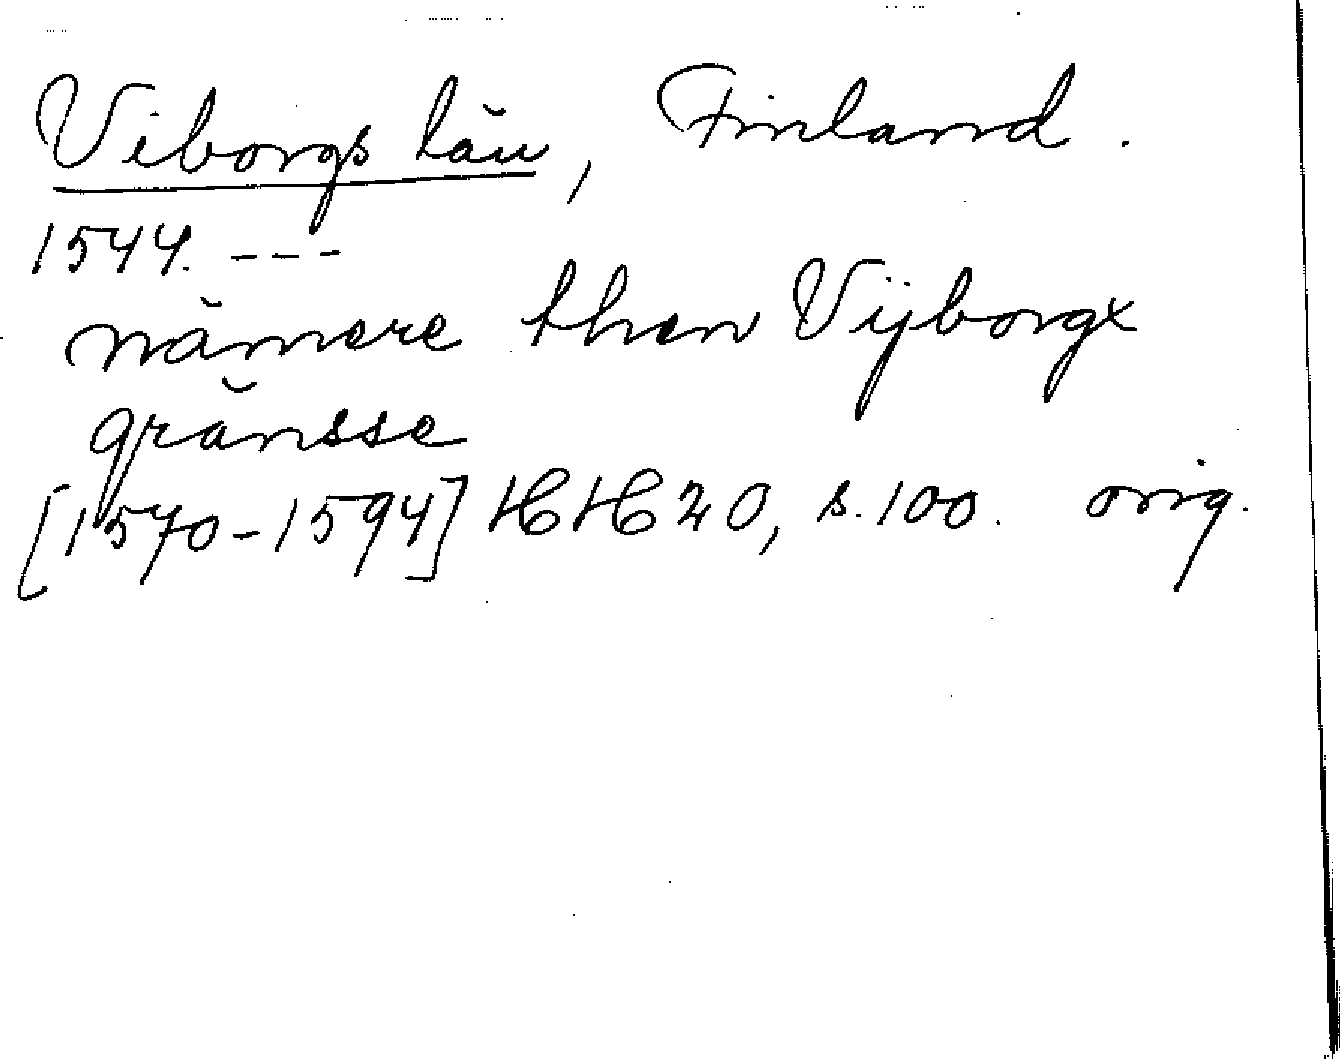 Viborgs län, Finland.
1544. ---
nämere then Vijborgx
gränsse
[1570-1594] HH 20, s. 100. orig.